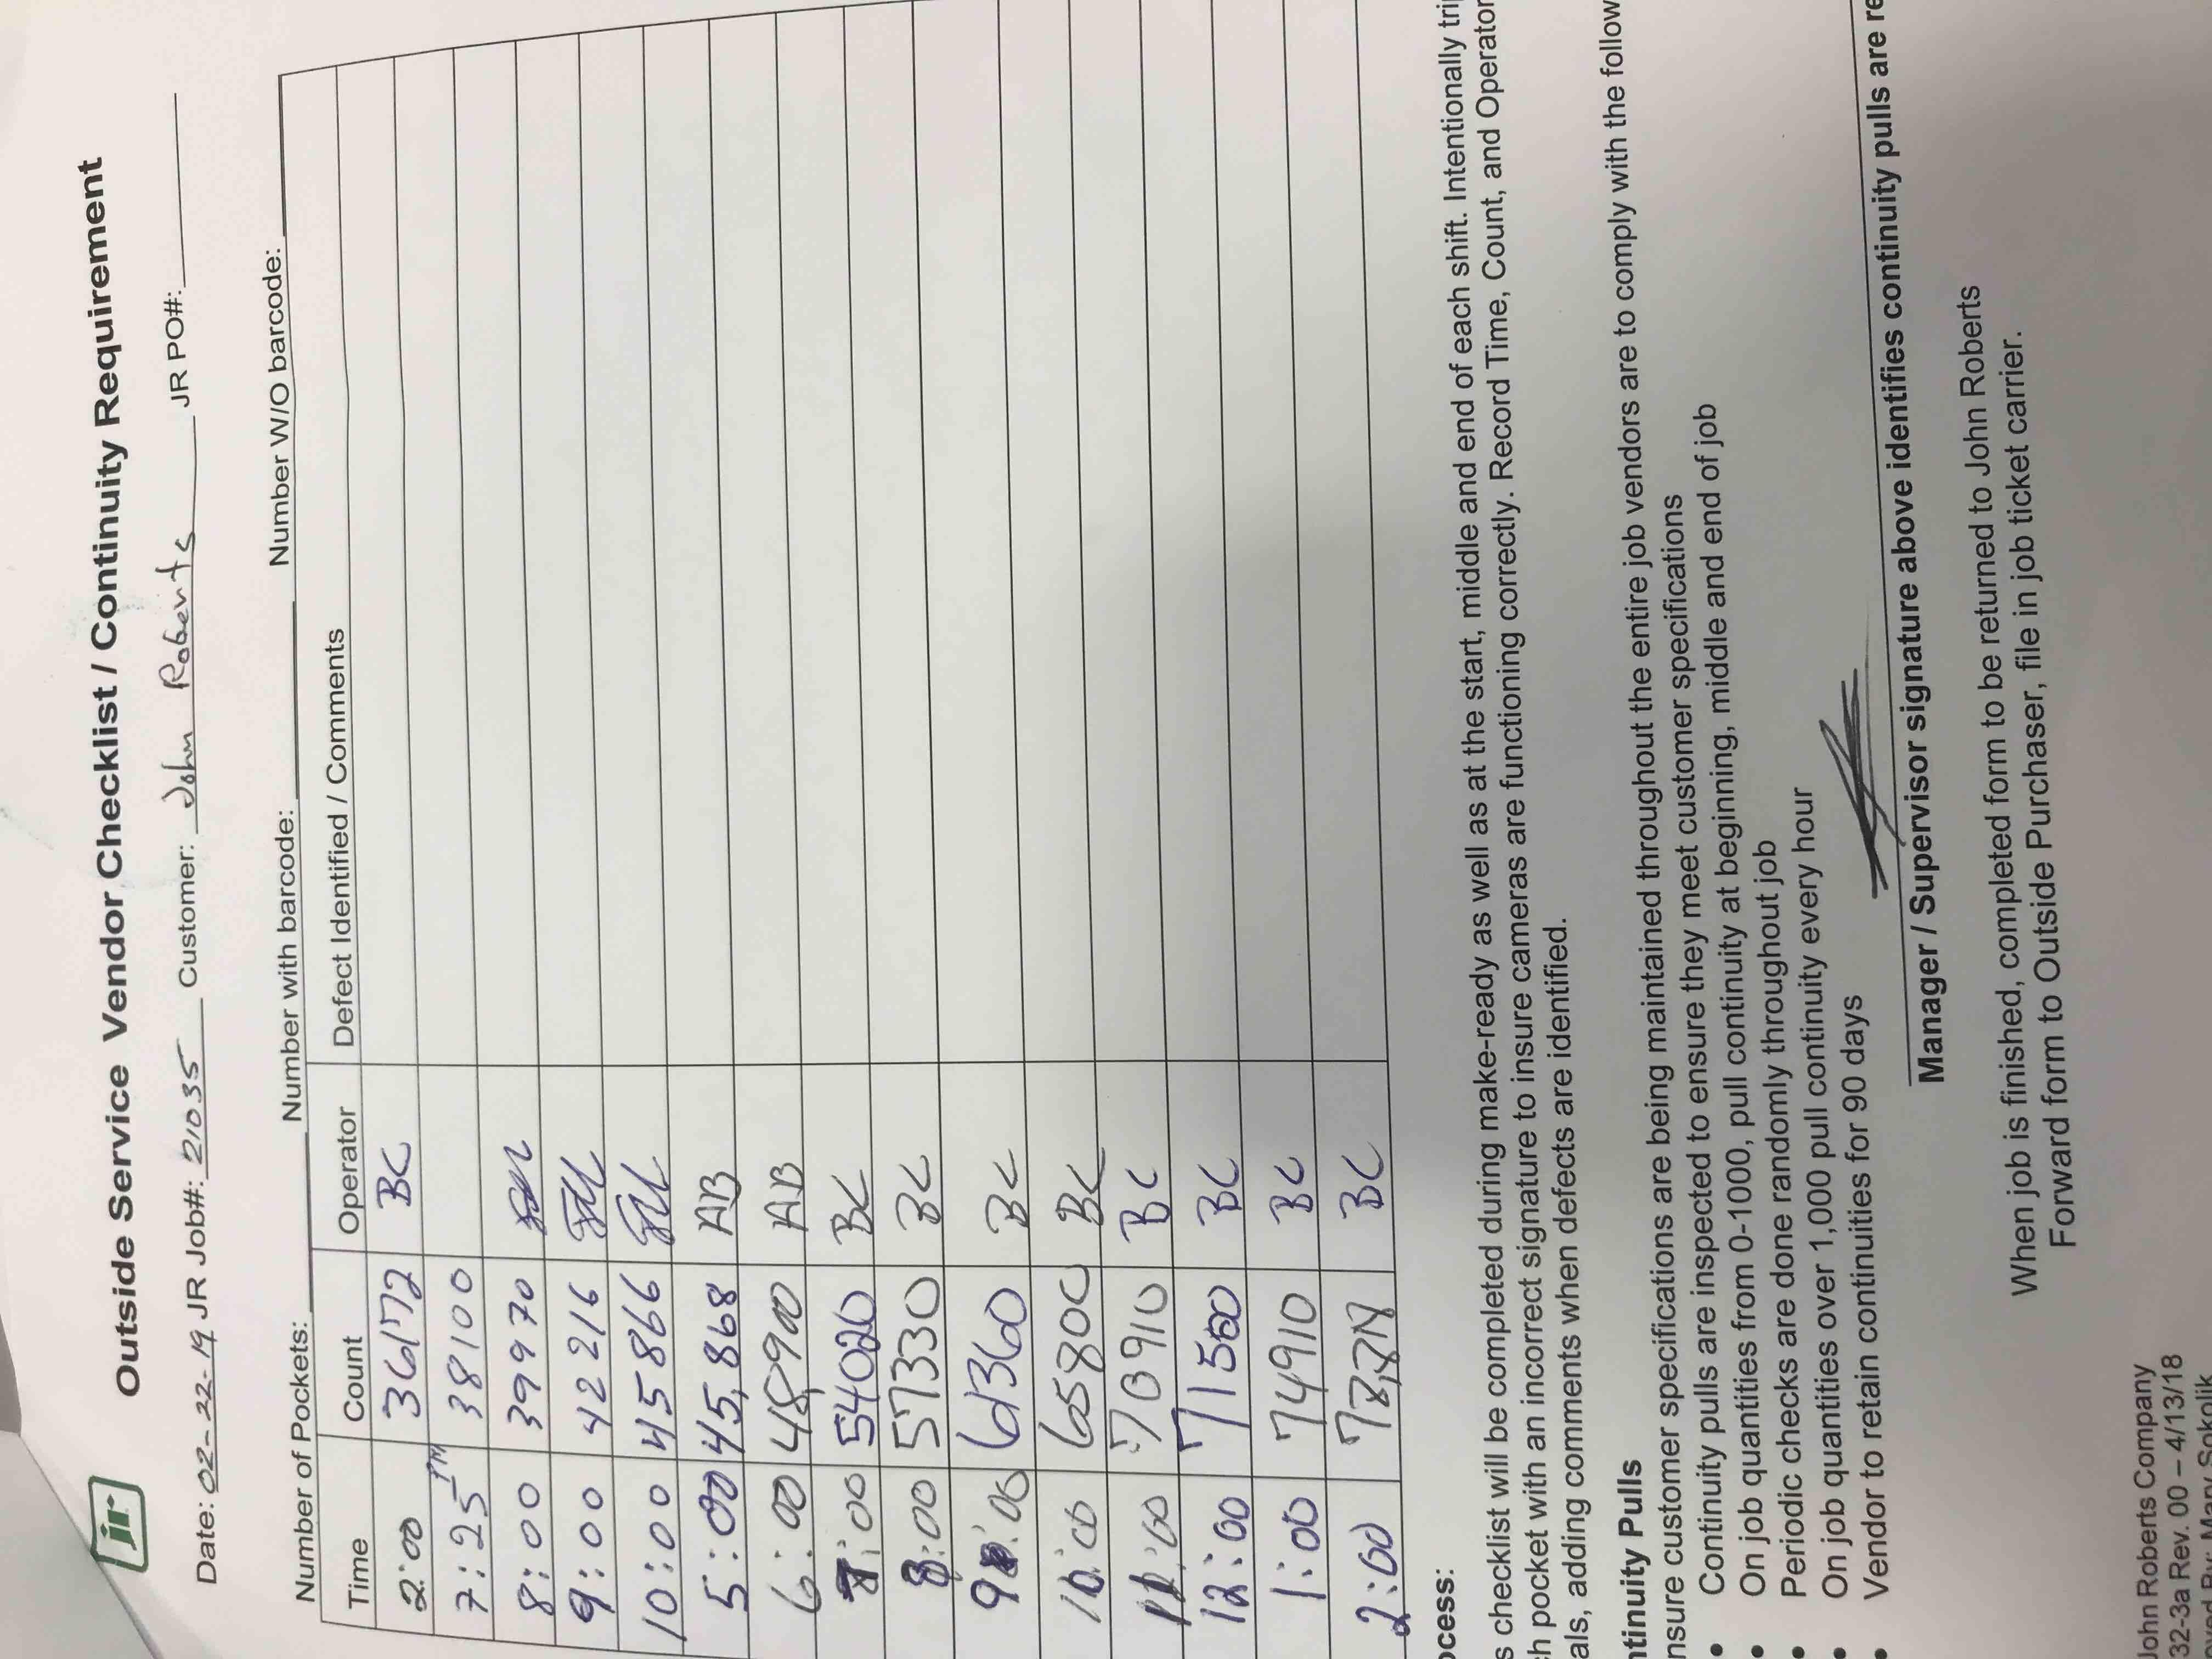 jr
Outside Service Vendor Checklist / Continuity Requirement
Date: 02-22-19 JR Job#: 21035 Customer: John Roberts JR PO#:
Number of Pockets: Number with barcode: Number W/O barcode:
Time Count Operator Defect Identified / Comments
2:00 36172 BC
7:25 PM 38100
8:00 39970
9:00 42216
10:00 45866
5:00 45,868 AB
6:00 48,900 AB
7:00 54020 BC
8:00 57330 BC
9:00 BC
10:00 65800 BC
11:00 70910 BC
12:00 71500 BC
1:00 74910 BC
2:00 BC
ocess:
s checklist will be completed during make-ready as well as at the start, middle and end of each shift. Intentionally tri
ch pocket with an incorrect signature to insure cameras are functioning correctly. Record Time, Count, and Operator
als, adding comments when defects are identified.
ntinuity Pulls
nsure customer specifications are being maintained throughout the entire job vendors are to comply with the follow
• Continuity pulls are inspected to ensure they meet customer specifications
• On job quantities from 0-1000, pull continuity at beginning, middle and end of job
• Periodic checks are done randomly throughout job
• On job quantities over 1,000 pull continuity every hour
• Vendor to retain continuities for 90 days
Manager / Supervisor signature above identifies continuity pulls are re
When job is finished, completed form to be returned to John Roberts
Forward form to Outside Purchaser, file in job ticket carrier.
John Roberts Company
32-3a Rev. 00 – 4/13/18
oved By: Mary Sokolik